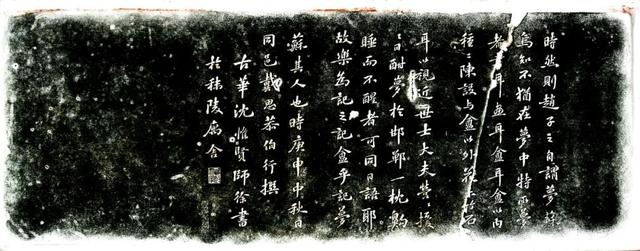 時然則趙子之自謂夢蘇
焉知不猶在夢中特所夢
者畫耳盦耳盦以內
種之陳設與盦以外
耳以視近世士大夫營〻擾
〻日酣夢於邯鄲一枕
睡而不醒者可同日語耶
故樂為記之記盦乎記夢
蘇其人也時庚申中秋日
同邑戴思恭伯行撰
古華沈惟賢師徐書
於秣陵寓舍